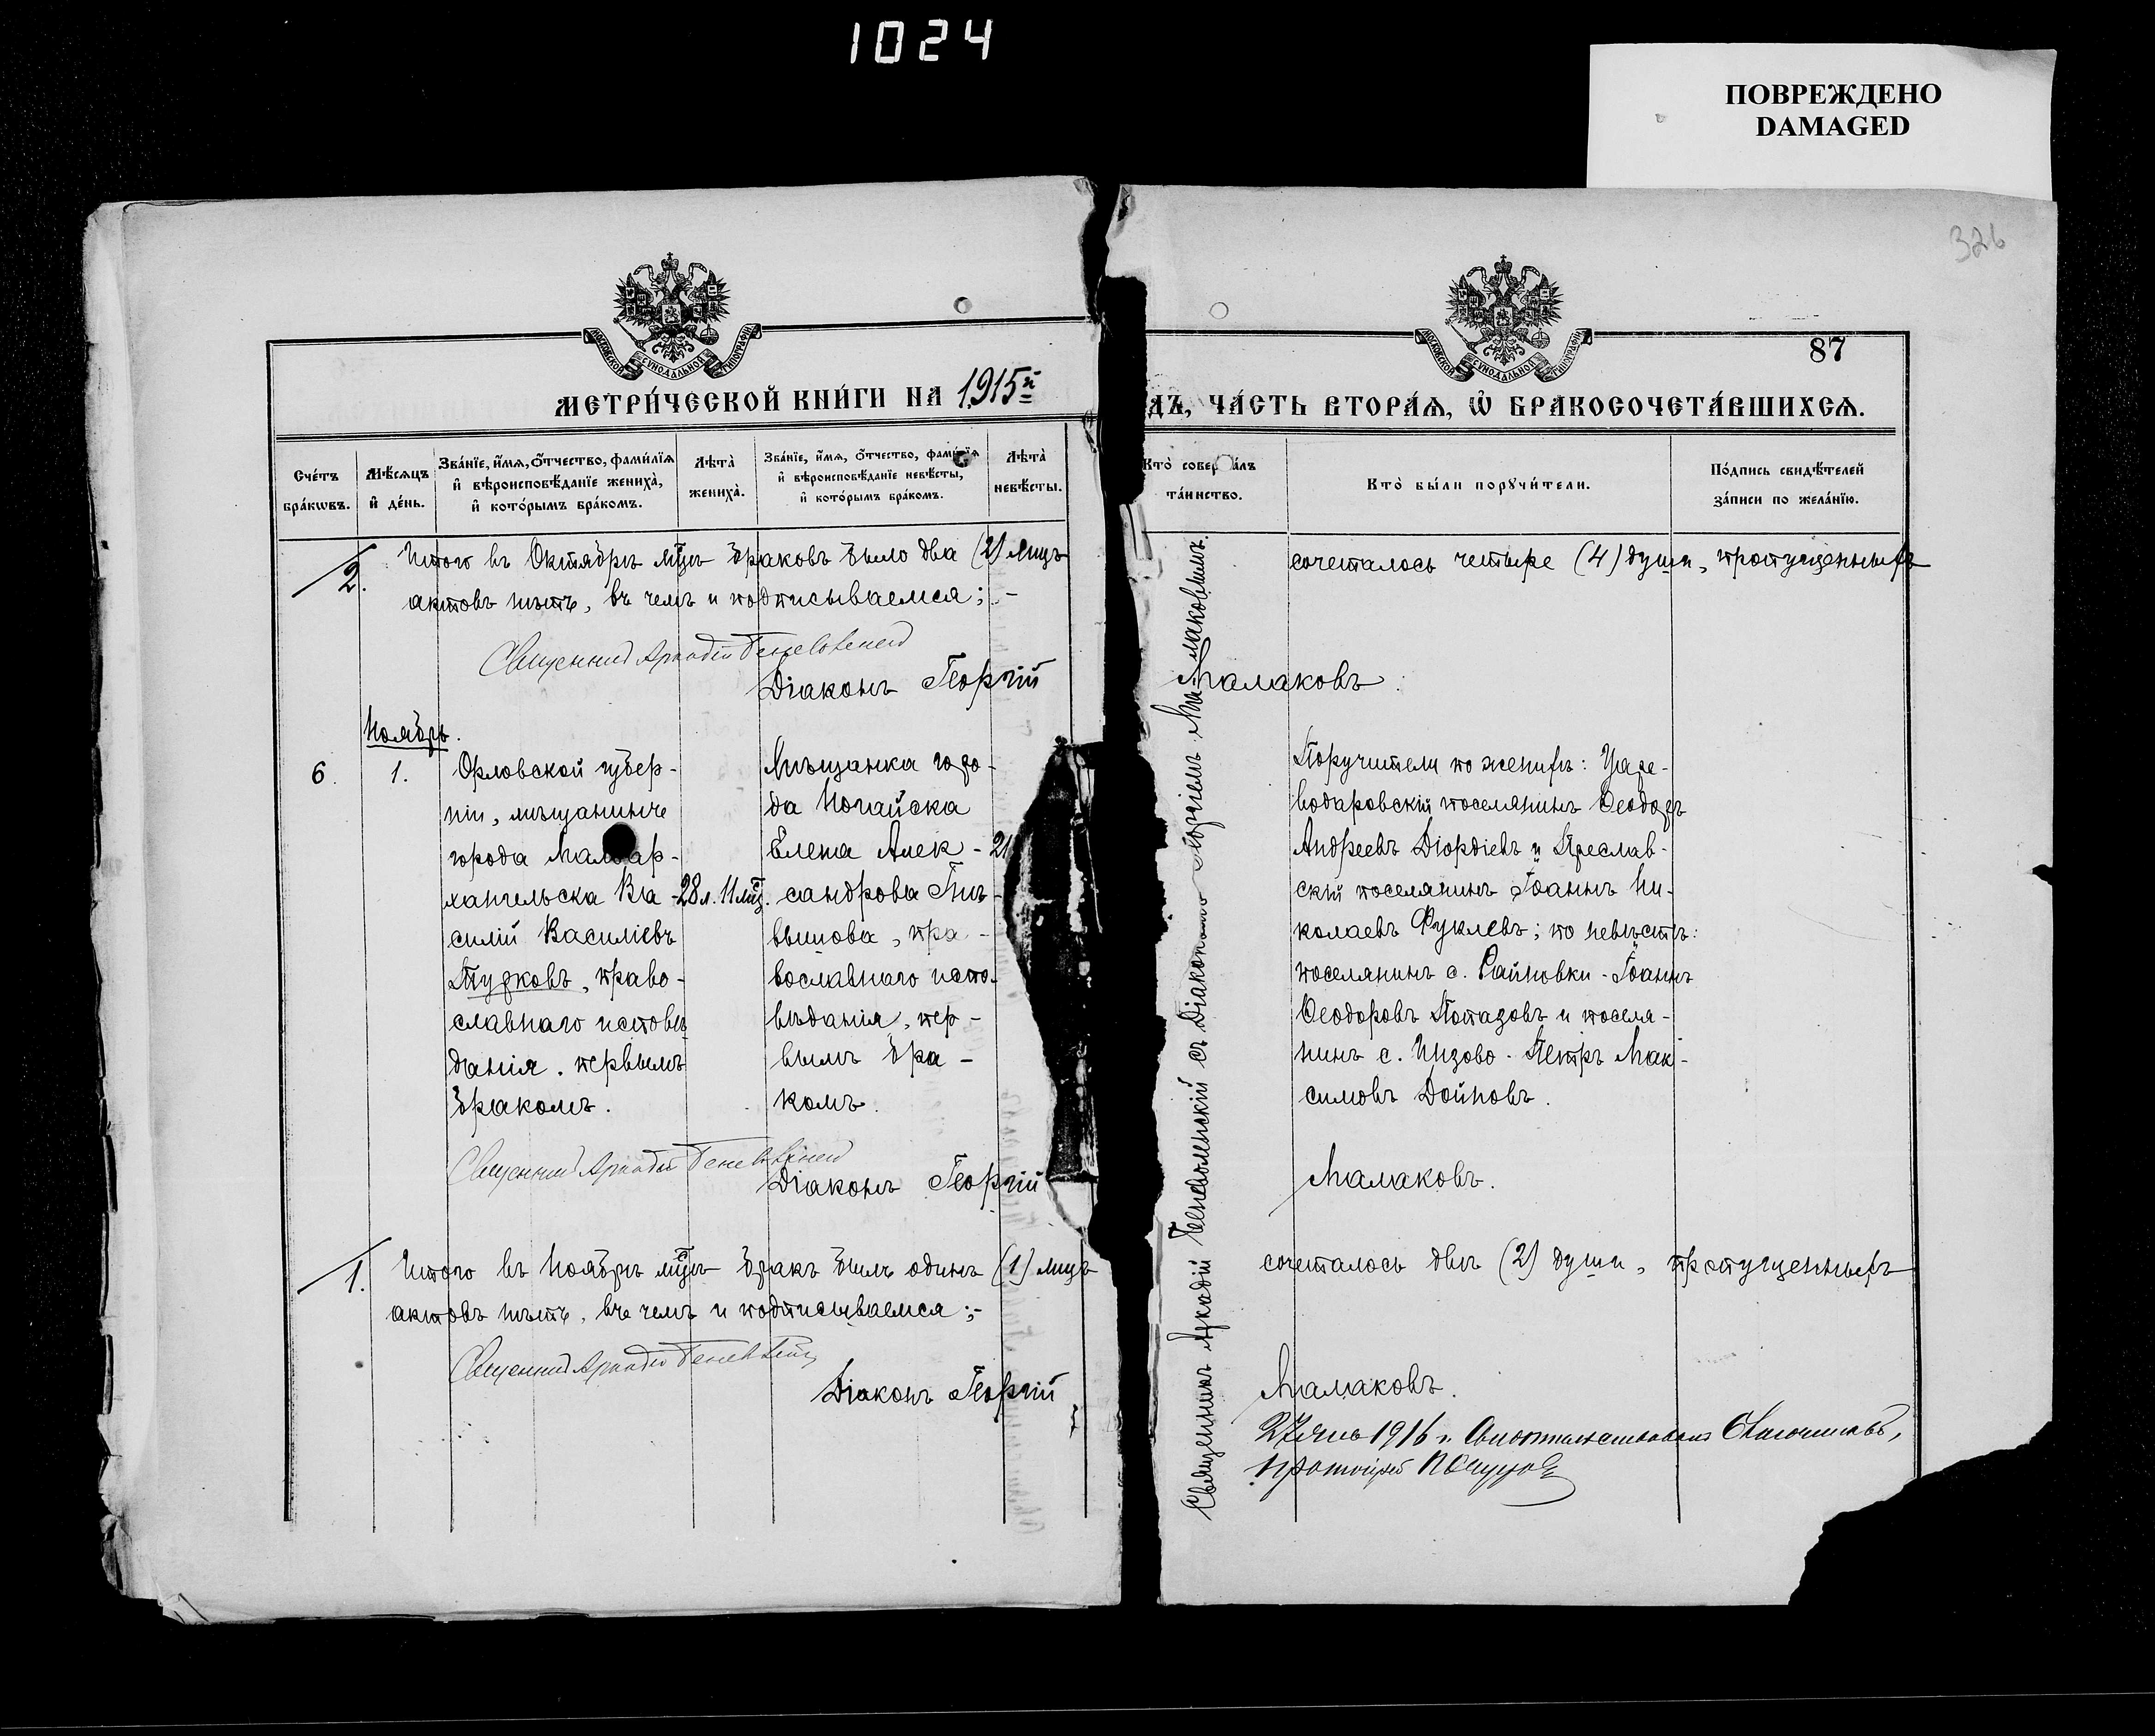 1024
ПОВРЕЖДЕНО
DAMAGED
326
87
МОСКОВСКОЙ СУНОДАЛЬНОЙ ТИПОГРАФІИ
МОСКОВСКОЙ СУНОДАЛЬНОЙ ТИПОГРАФІИ
МЕТРИ́ЧЕСКОЙ КНИ́ГИ НА 1915й
ДЪ, ЧА́СТЬ ВТОРА́Ѧ, Ѡ҆ БРАКОСОЧЕТА́ВШИХСѦ.
Сче́тъ
бра́кѡвъ.
Мѣ́сѧцъ
и҆ де́нь.
Зва́нїе, и҆́мѧ, о҆́тчество, фами́лїѧ
и҆ вѣроисповѣ́данїе жениха̀,
и҆ кото́рымъ бра́комъ.
Лѣта̀
жениха̀.
Зва́нїе, и҆́мѧ, о҆́тчество, фами́лїѧ
и҆ вѣроисповѣ́данїе невѣ́сты,
и҆ кото́рымъ бра́комъ.
Лѣта̀
невѣ́сты.
Кто̀ совер а́лъ
та́инство.
Кто̀ бы́ли порꙋчи́тели.
По́дпись свидѣ́телей
за́писи по жела́нїю.
2.
Итого въ Октябрѣ мцѣ браковъ было два (2) лицъ
сочеталось четыре (4) души, пропущенныхъ
актовъ нѣтъ, въ чемъ и подписываемся:-
Священникъ Аркадій
Діаконъ Георгій
Малаковъ.
Ноябрь.
6.
1.
Орловской губер-
ніи, мѣщанинъ
города Малоар-
хангельска Ва-
силій Василіевъ
Турковъ, право-
славнаго исповѣ
данія, первымъ
бракомъ.
28 л. 11 мц.
Мѣщанка горо-
да Ногайска
Елена Алек-
сандрова Пи-
вынова, пра-
вославнаго испо-
вѣданія, пер-
вымъ бра-
комъ.
21
Священникъ Аркадій Беневоленскій съ Діакономъ Георгіемъ Малаковымъ.
Поручители по женихѣ: Царе-
водаровскій поселянинъ Ѳеодоръ
Андреевъ Діордіевъ и Преслав-
скій поселянинъ Іоаннъ Ни-
колаевъ Фуклевъ; по невѣстѣ:
поселянинъ с. Райновки - Іоаннъ
Ѳеодоровъ Попазовъ и поселя-
нинъ с. Инзово - Петръ Мак-
симовъ Дойновъ.
Священникъ Аркадій
Діаконъ Георгій
Малаковъ.
1.
Итого въ Ноябрѣ мцѣ бракъ былъ одинъ (1) лицъ
сочеталось двѣ (2) души, пропущенныхъ
актовъ нѣтъ, въ чемъ и подписываемся:-
Священникъ Аркадій
Діаконъ Георгій
Малаковъ.
1916 г.
протоіерей